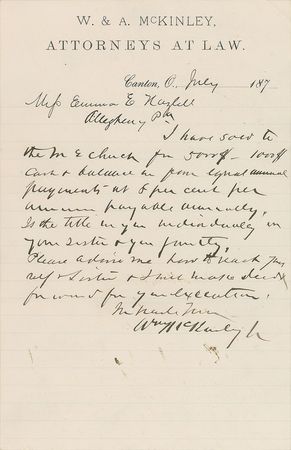 W. & A. McKINLEY,
ATTORNEYS AT LAW.
Canton, O., July 187
Miss Emma E Hazlett
Allegheny Pa
I have sold to
the M E church for 5000$ - 1000$
cash & balance in four equal annual
payments at 6 per cent per
annum payable annually.
Is the title in you individually or
your sister & you jointly.
Please advise me how to reach your
self & Sister & I will make deed
forward for your execution.
Wm McKinley Jr